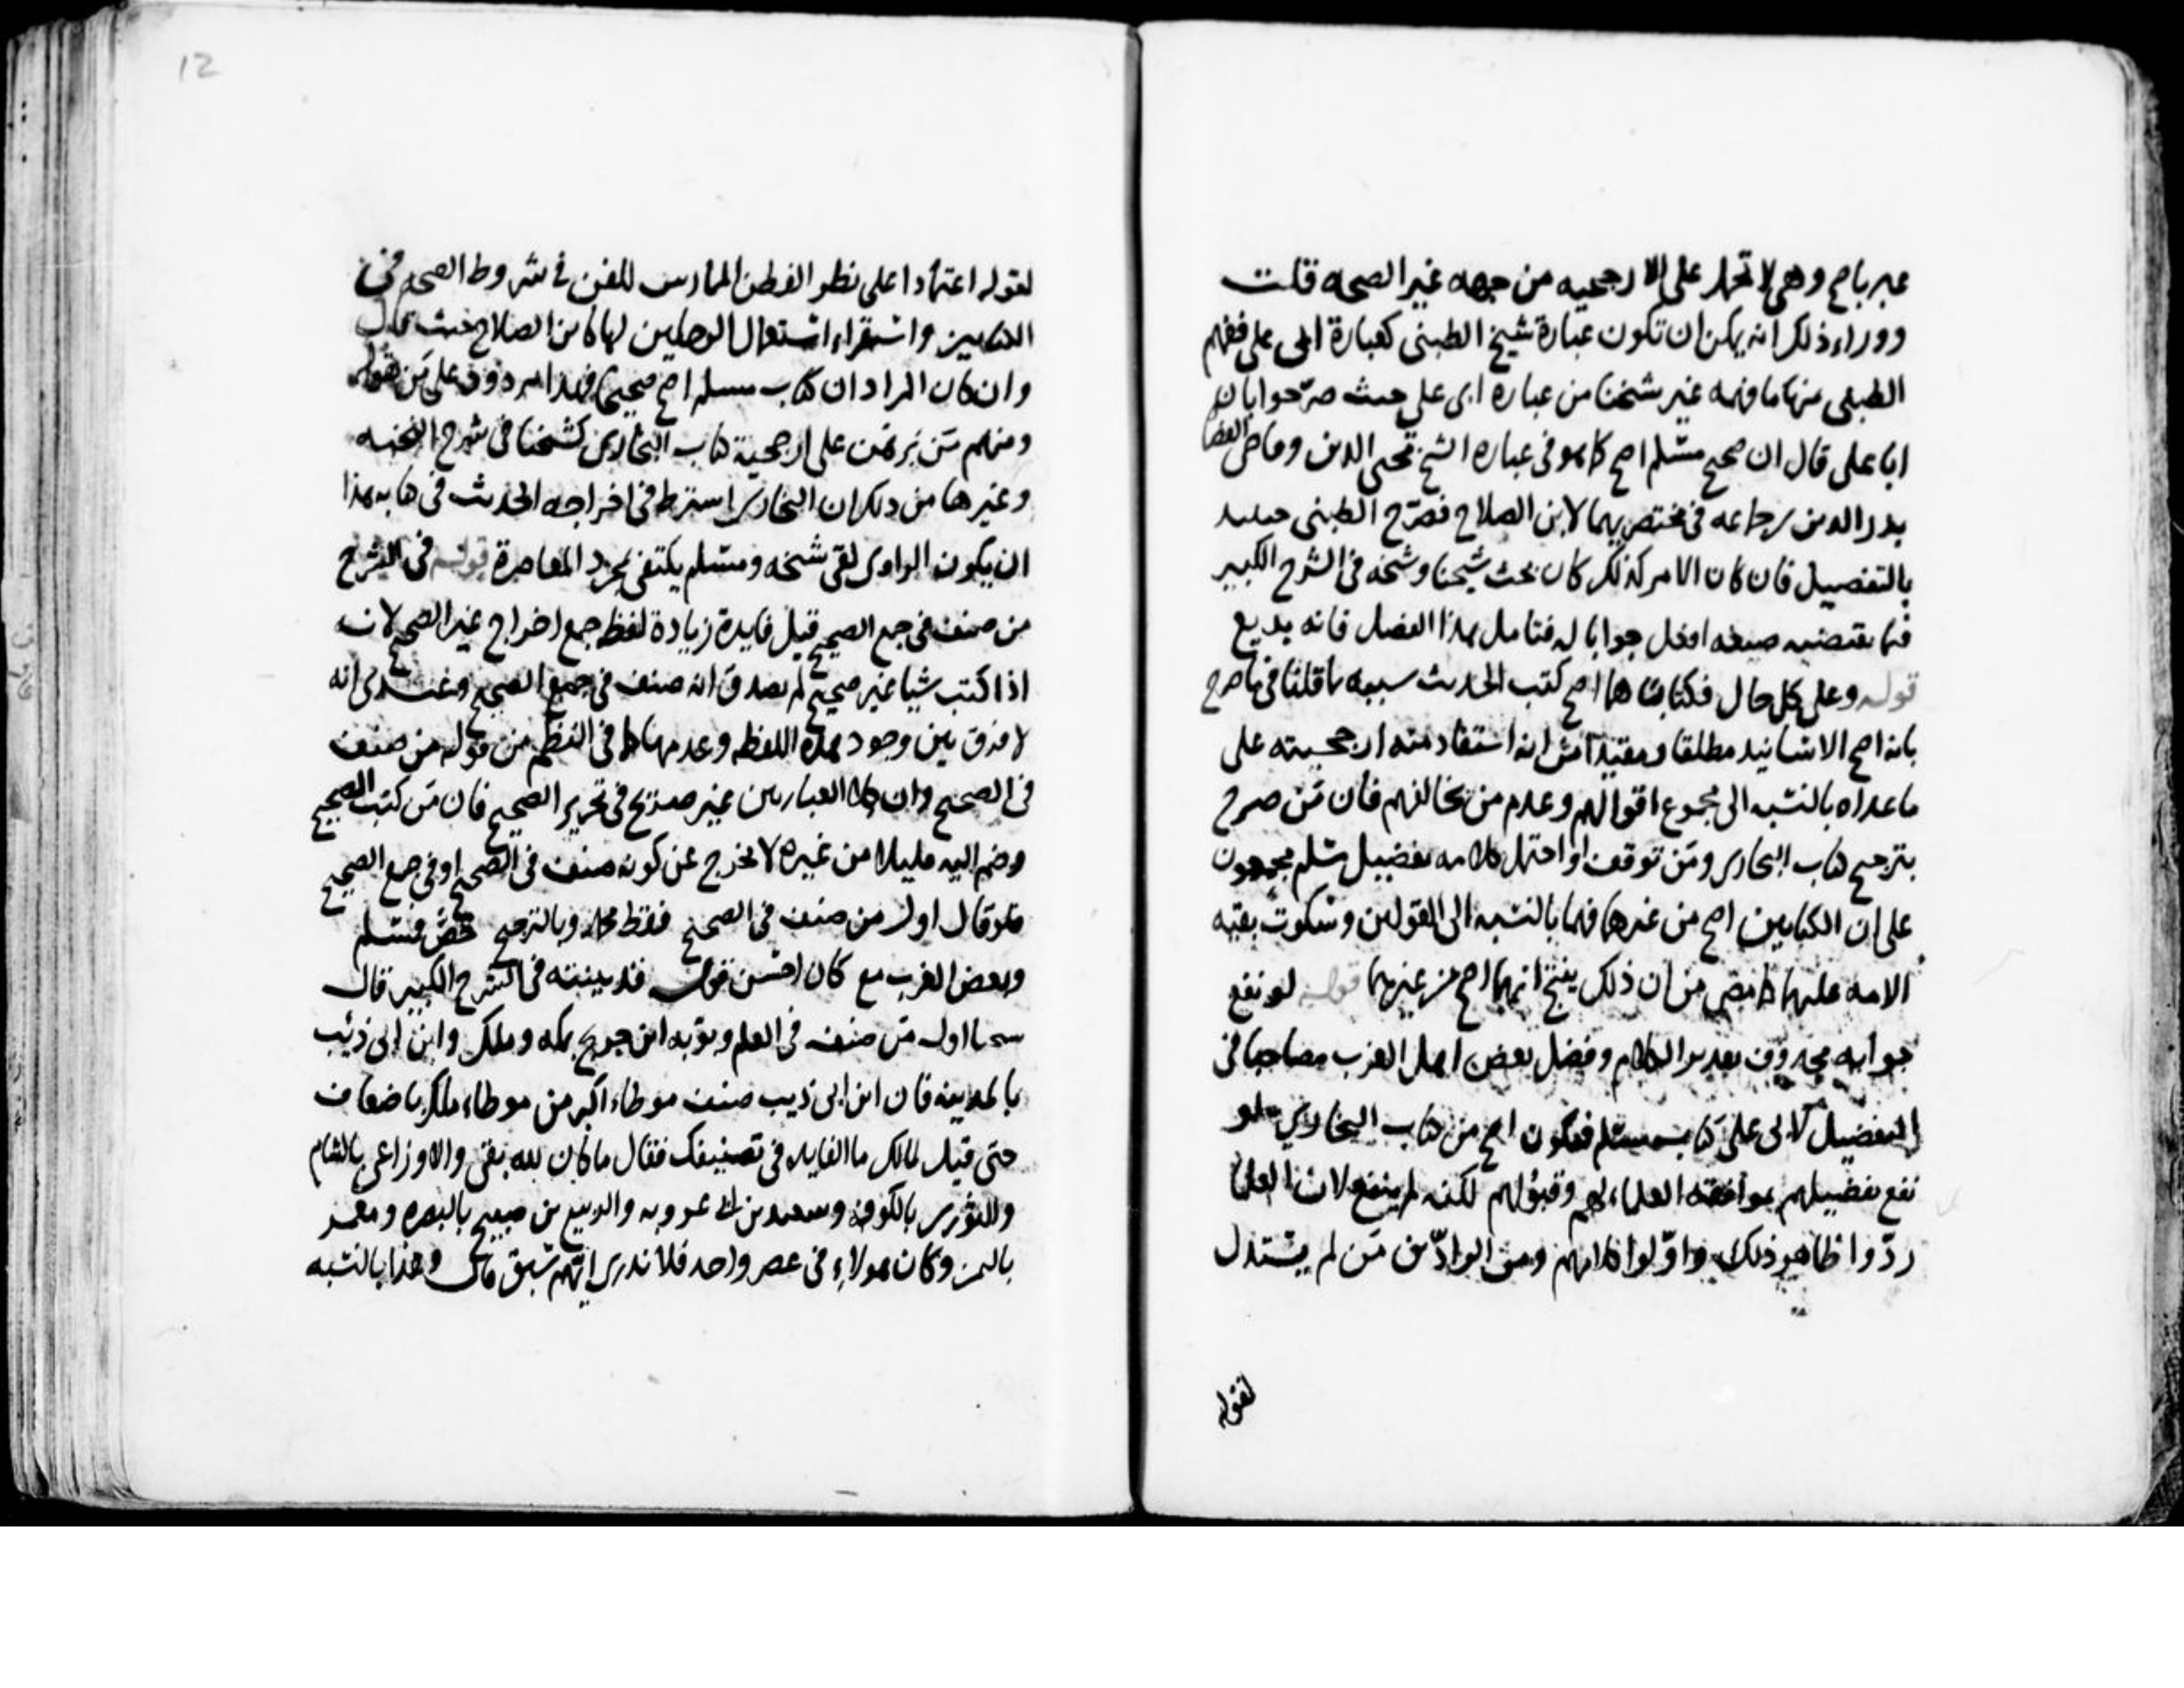 عبر باصح وهي لا تحمل على الارجحيه من جهه غير الصحه قلت
ووراء ذلك انه يمكن ان تكون عبارة شيخ الطبني كعبارة ابي على ففهم
الطبنى منها ما فهمه غير شيخنا من عباره ابى على حيث صرّحوا بان
ابا على قال ان صحيح مسْلم اصح كما هو فى عباره الشيخ محيى الدين وقاضى القضا
بدر الدين بن جماعه فى مختصريهما لابن الصلاح فصَرّح الطبنى حينيد
بالتفصيل فان كان الامر كذلك كان بحث شيخنا وشيخه فى الشرح الكبير
فيما يقتضيه صيغه افعل جوابا له فتامل هذا الفصل فانه بديع
قوله وعلى كل حال فكتاباهما اصح كتب الحديث سببه ما قلنا فى ما صرح
بانه اصح الاسْانيد مطلقا ومقيدا من انه استفاد منه ارجحيته على
ما عداه بالنسْبه الى مجموع اقوالهم وعدم من يخالفهم فان مَن صرح
بترجيح كتاب البخارى ومَن توقف او احتمل كلامه تفضيل مسْلم مجمعون
على ان الكتابين اصح من غيرهما فهما بالنسْبه الى القولين وسْكوت بقيه
الامه عليهما كما مضى من ان ذلك ينتج انهما اصح من غيرهما قوله لو نفع
جوابه محذوف تقدير الكلام وفضل بعض اهل الغرب مصاحبا فى
التفضيل لابى على كتاب مسْلم فيكون اصح من كتاب البخاري فلو
نفع تفضيلهم بموافقه العلماء لهم وقبولهم لكنه لم ينفع لان العلما
ردّوا ظاهر ذلك واوّلوا كلامهم ومن الرادّين مَن لم يسْتدل
لقوله
12
لقوله اعتمادا على نظر الفطن الممارس للفن فى شروط الصحه فى
الكتابين واستقراء استعمال الرجلين لها كابن الصلاح حيث قال
وان كان المراد ان كتاب مسلم اصح صحيحا فهذا مردود على مَن يقوله
ومنهم مَن بَرهَن على ارجحية كتاب البخارى كشيخنا فى شرح النخبه
وغيرها من ذلك ان البخارى اشترط فى اخراجه الحديث فى كتابه هذا
ان يكون الراوى لقى شيخه ومسْلم يكتفى بمجرد المعاصرة قوله فى الشرح
من صنف فى جمع الصحيح قيل فايدة زيادة لفظ جمع اخراج غير الصحيح لانه
اذا كتب شيا غير صحيح لم يصدق انه صنف فى جميع الصحيح وعندى انه
لا فرق بين وجود هذه اللفظه وعدمها كما فى النظم من قوله من صنف
فى الصحيح وان كلا العبارتين غير صريح فى تحرير الصحيح فان مَن كتب الصحيح
وضم اليه قليلا من غيره لا يخرج عن كونه صنف فى الصحيح او فى جمع الصحيح
فلو قال اول من صنف فى الصحيح فقط محمد وبالترجيح خص فمسْلم
وبعض الغرب مع كان احسن قوله قد بينته فى الشرح الكبير قال
اول مَن صنف فى العلم وبوّبه ابن جريج بمكه وملك وابن ابى ذئب
بالمدينه فان ابن ابى ذيب صنف موطاء اكبر من موطاء ملك باضعاف
حتى قيل لمالك ما الفايده فى تصنيفك فقال ما كان لله بقى والاوزاعى بالشام
والثورى بالكوفه وسعيد بن ابى عروبه والربيع بن صبيح بالبصره ومعمر
باليمن وكان هولاء فى عصر واحد فلا ندرى ايّهم سْبق وهذا بالنسْبه